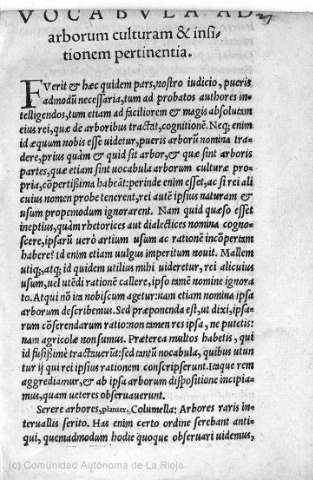 VOCABVLA AD
arborum culturam & insi-
tionem pertinentia.
FVerit & hæc quidem pars, nostro iudicio, pueris
admodū necessaria, tum ad probatos authores in-
telligendos, tum etiam ad faciliorem & magis absolutam
eius rei, quæ de arboribus tractat, cognitionē. Neq; enim
id æquum nobis esse uidetur, pueris arborū nomina tra-
dere, prius quàm & quid sit arbor, & quæ sint arboris
partes, quæ etiam sint uocabula arborum culturæ pro-
pria, cōpertißima habeāt: perinde enim esset, ac si rei ali
cuius nomen probe tenerent, rei autē ipsius naturam &
usum propemodum ignorarent. Nam quid quæso esset
ineptius, quàm rhetorices aut dialectices nomina cogno-
scere, ipsarū uerò artium usum ac rationē incōpertam
habere? Id enim etiam uulgus imperitum nouit. Mallem
utiq;, atq; id quidem utilius mihi uideretur, rei alicuius
usum, uel utēdi rationē callere, ipso tamē nomine ignora
to. Atqui nō ita nobiscum agetur: nam etiam nomina ipsa
arborum describemus. Sed præponenda est, ut dixi, ipsa-
rum cōserendarum ratio: non tamen res ipsa, ne putetis:
nam agricolæ non sumus. Præterea multos habetis, qui
id fusißimè tractauerūt: sed tantū uocabula, quibus utun
tur ij qui rei ipsius rationem conscripserunt. Itaque rem
aggrediamur, & ab ipsa arborum dispositione incipia-
mus, quam ueteres obseruauerunt.
Serere arbores, planter. Columella: Arbores raris in-
teruallis serito. Has enim certo ordine serebant anti-
qui, quemadmodum hodie quoque obseruari uidemus,
(c) Comunidad Autónoma de La Rioja